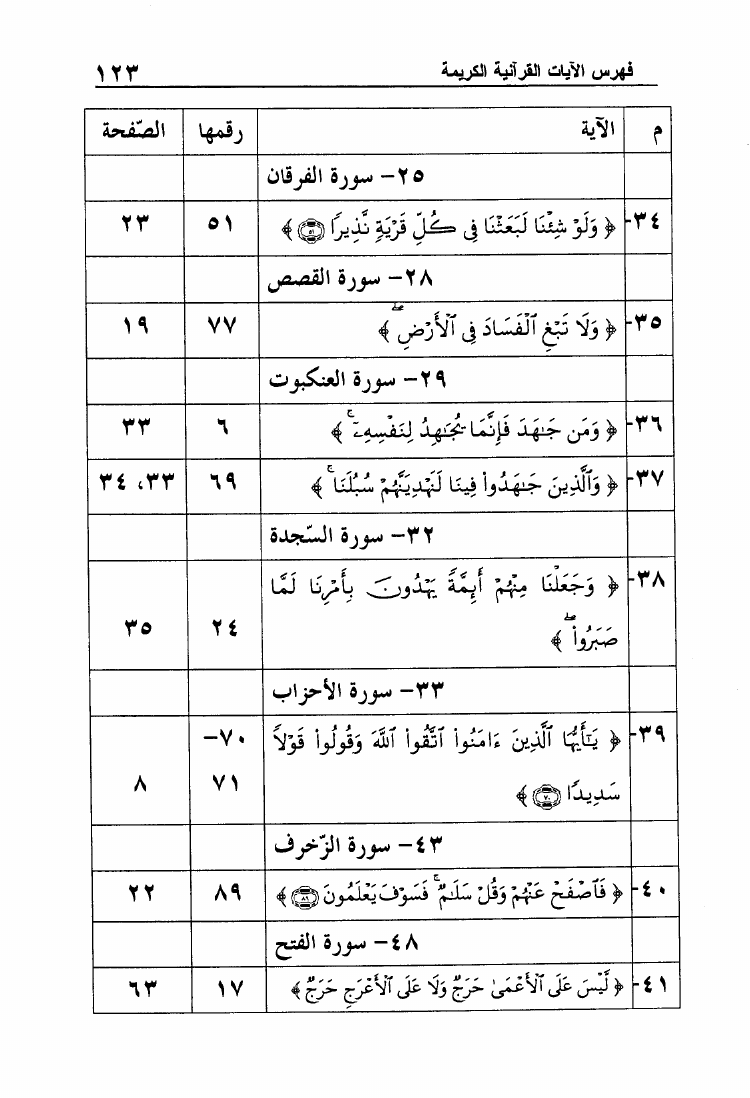 فهرس الآيات القرآنية الكريمة ١٢٣
م الآية رقمها الصّفحة
٢٥- سورة الفرقان
٣٤- ﴿ وَلَوْ شِئْنَا لَبَعَثْنَا فِى كُلِّ قَرْيَةٍ نَّذِيرًا ٥١ ﴾ ٥١ ٢٣
٢٨- سورة القصص
٣٥- ﴿ وَلَا تَبْغِ ٱلْفَسَادَ فِى ٱلْأَرْضِ ۖ ﴾ ٧٧ ١٩
٢٩- سورة العنكبوت
٣٦- ﴿ وَمَن جَـٰهَدَ فَإِنَّمَا يُجَـٰهِدُ لِنَفْسِهِۦٓ ۚ ﴾ ٦ ٣٣
٣٧- ﴿ وَٱلَّذِينَ جَـٰهَدُوا۟ فِينَا لَنَهْدِيَنَّهُمْ سُبُلَنَا ۚ ﴾ ٦٩ ٣٣، ٣٤
٣٢- سورة السّجدة
٣٨- ﴿ وَجَعَلْنَا مِنْهُمْ أَئِمَّةً يَهْدُونَ بِأَمْرِنَا لَمَّا
صَبَرُوا۟ ۖ ﴾ ٢٤ ٣٥
٣٣- سورة الأحزاب
٣٩- ﴿ يَـٰٓأَيُّهَا ٱلَّذِينَ ءَامَنُوا۟ ٱتَّقُوا۟ ٱللَّهَ وَقُولُوا۟ قَوْلًا ٧٠-
سَدِيدًا ٧٠ ﴾ ٧١ ٨
٤٣- سورة الزّخرف
٤٠- ﴿ فَٱصْفَحْ عَنْهُمْ وَقُلْ سَلَـٰمٌ ۚ فَسَوْفَ يَعْلَمُونَ ٨٩ ﴾ ٨٩ ٢٢
٤٨- سورة الفتح
٤١- ﴿ لَّيْسَ عَلَى ٱلْأَعْمَىٰ حَرَجٌ وَلَا عَلَى ٱلْأَعْرَجِ حَرَجٌ ﴾ ١٧ ٦٣